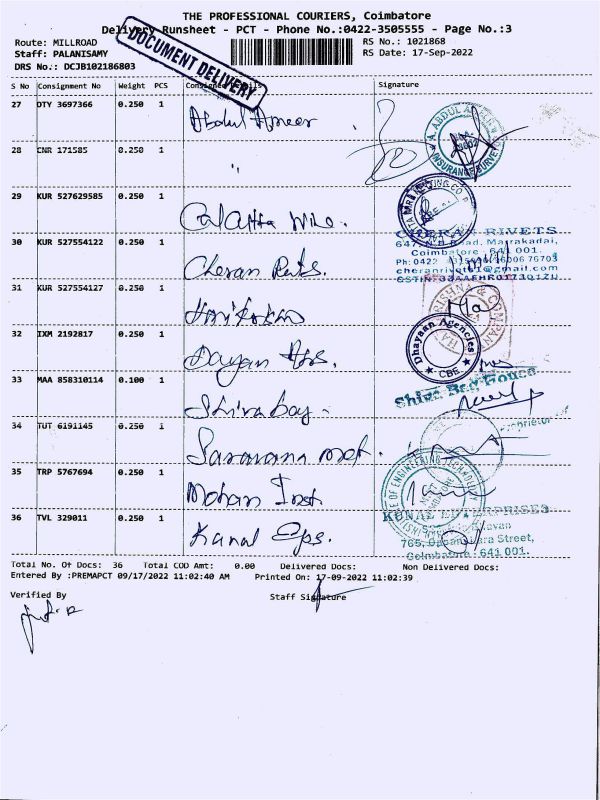 THE PROFESSIONAL COURIERS, Coimbatore
Delivery Runsheet - PCT - Phone No.:0422-3505555 - Page No.:3
DOCUMENT DELIVERY
Route: MILLROAD
Staff: PALANISAMY
DRS No.: DCJB102186803
RS No.: 1021868
RS Date: 17-Sep-2022
S No Consignment No Weight PCS Consignee Signature
27 DTY 3697366 0.250 1 Abdul Ameer
28 CNR 171585 0.250 1 "
INSURANCE SURVE
29 KUR 527629585 0.250 1 Calcutta Wire.
30 KUR 527554122 0.250 1 Cheran Rvts.
CHERAN RIVETS
647, N.H Road, Majrakadai,
Coimbatore 641 001.
Ph: 0422
cheranrivets1@gmail.com
31 KUR 527554127 0.250 1
KRISHNA & COMPANY
32 IXM 2192817 0.250 1 Dayan
Dhayaan Agencies
CBE
33 MAA 858310114 0.100 1 Shiva bag.
Shiva Bag House
Proprietor
34 TUT 6191145 0.250 1 Saravana mot.
35 TRP 5767694 0.250 1 Mohan Inst
OF ENGINEERING TECHNOLOGY
36 TVL 329011 0.250 1 Kunal Eps.
KUNAL ENTERPRISES
765, Street,
Coimbatore - 641 001.
Total No. Of Docs: 36 Total COD Amt: 0.00 Delivered Docs: Non Delivered Docs:
Entered By :PREMAPCT 09/17/2022 11:02:40 AM Printed On: 17-09-2022 11:02:39
Verified By Staff Signature